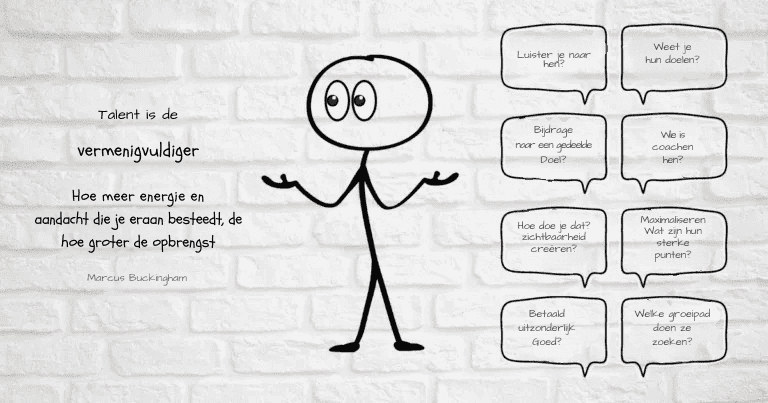 Talent is de
vermenigvuldiger
Hoe meer energie en
aandacht die je eraan besteedt, de
hoe groter de opbrengst
Marcus Buckingham
Luister je naar
hen?
Weet je
hun doelen?
Bijdrage
naar een gedeelde
Doel?
Wie is
coachen
hen?
Hoe doe je dat?
zichtbaarheid
creëren?
Maximaliseren
Wat zijn hun
sterke
punten?
Betaald
uitzonderlijk
Goed?
Welke groeipad
doen ze
zoeken?